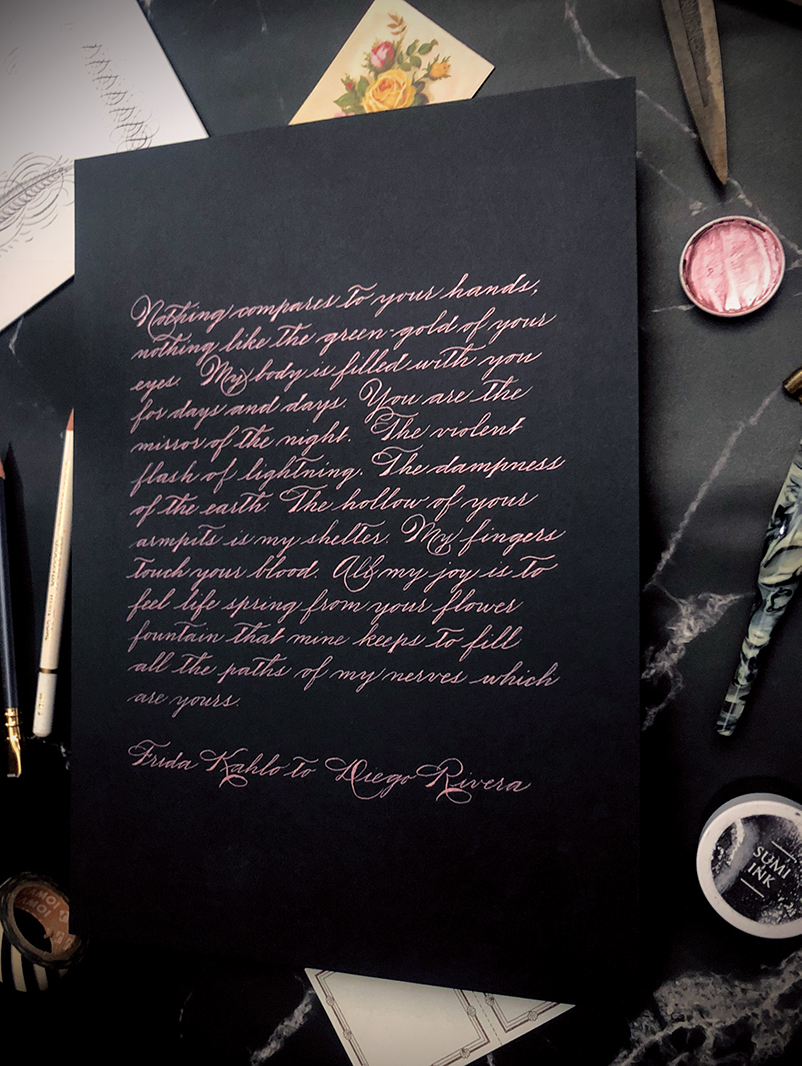 Nothing compares to your hands,
nothing like the green-gold of your
eyes. My body is filled with you
for days and days. You are the
mirror of the night. The violent
flash of lightning. The dampness
of the earth. The hollow of your
armpits is my shelter. My fingers
touch your blood. All my joy is to
feel life spring from your flower
fountain that mine keeps to fill
all the paths of my nerves which
are yours.
Frida Kahlo to Diego Rivera
SUMI
INK